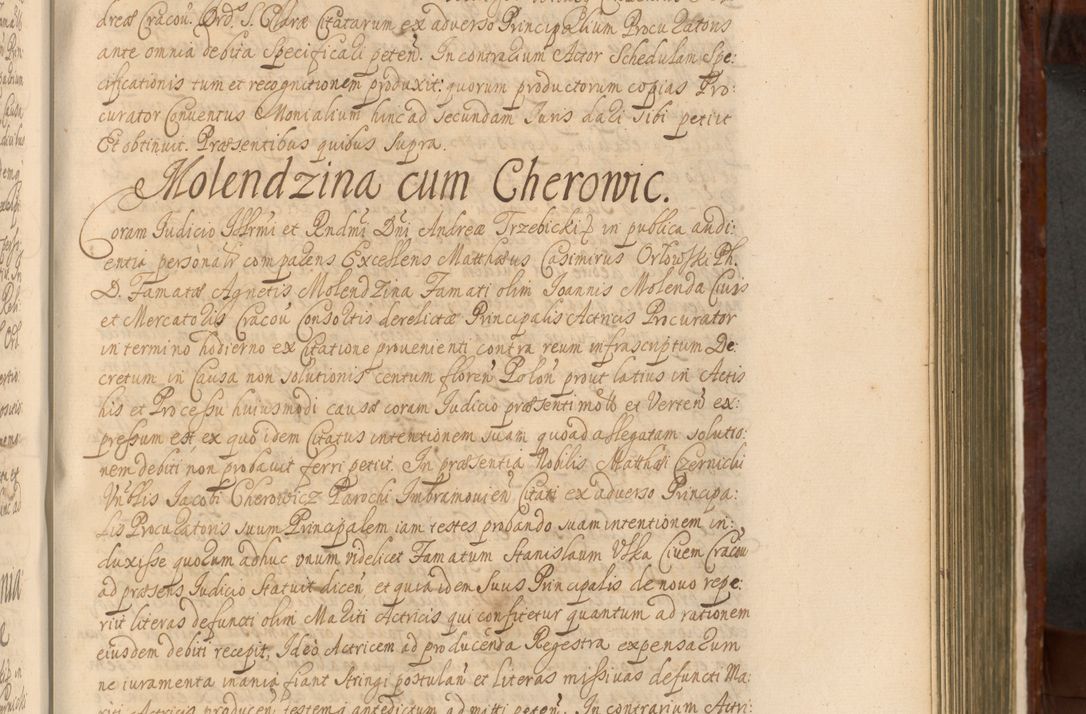 dreæ Cracou. Ord. S. Claræ Citatarum ex adverso Principalium Procuratoris
ante omnia debita Specificari peteñ. In contrarium Actor Schedulam Spe:
cificationis tum et recognitionem produxit: quorum productorum copias Pro:
curator Conventus Monialium hinc ad secundam Juris dari sibi petiit
Et obtinuit. Præsentibus quibus supra.
Molendzina cum Cherowic.
Coram Judicio Illrmi et Rndmi Dni Andreæ Trzebicki in publica audi:
entia personalr comparens Excellens Matthæus Casimirus Orlowski Ph.
D. Famatæ Agnetis Molendzina Famati olim Joannis Molenda Civis
et Mercatoris Cracou Consortis derelictæ Principalis Actricis Procurator
in termino hodierno ex Citatione provenienti contra reum infrascriptum De:
cretum in Causa non solutionis centum floreñ Poloñ prout latius in Actis
his et Processu huiusmodi causæ coram Judicio præsenti mott et Verteñ ex:
pressum est ex quo idem Citatus intentionem suam quoad allegatam solutio:
nem debiti non probavit ferri petiit. In præsentia Nobilis Matthæi Czernicki
Vnblis Jacobi Cherowicz Parochi Imbramovieñ Citati ex adverso Principa:
lis Procuratoris suum Principalem iam testes probando suam intentionem in:
duxisse quorum adhuc unum videlicet Famatum Stanislaum Uska Civem Cracou
ad præsens Judicio Statuit diceñ et quia idem suus Principalis de novo repe:
rit literas defuncti olim Mariti Actricis qui confitetur quantum ad rationem
eiusdem debiti recepit, Ideo Actricem ad producenda Regestra expensarum
ne iuramenta inania fiant stringi postulañ et literas missivas defuncti Ma:
riti Actricis produceñ testem antedictum admitti peteñ. In contrarium Actri: